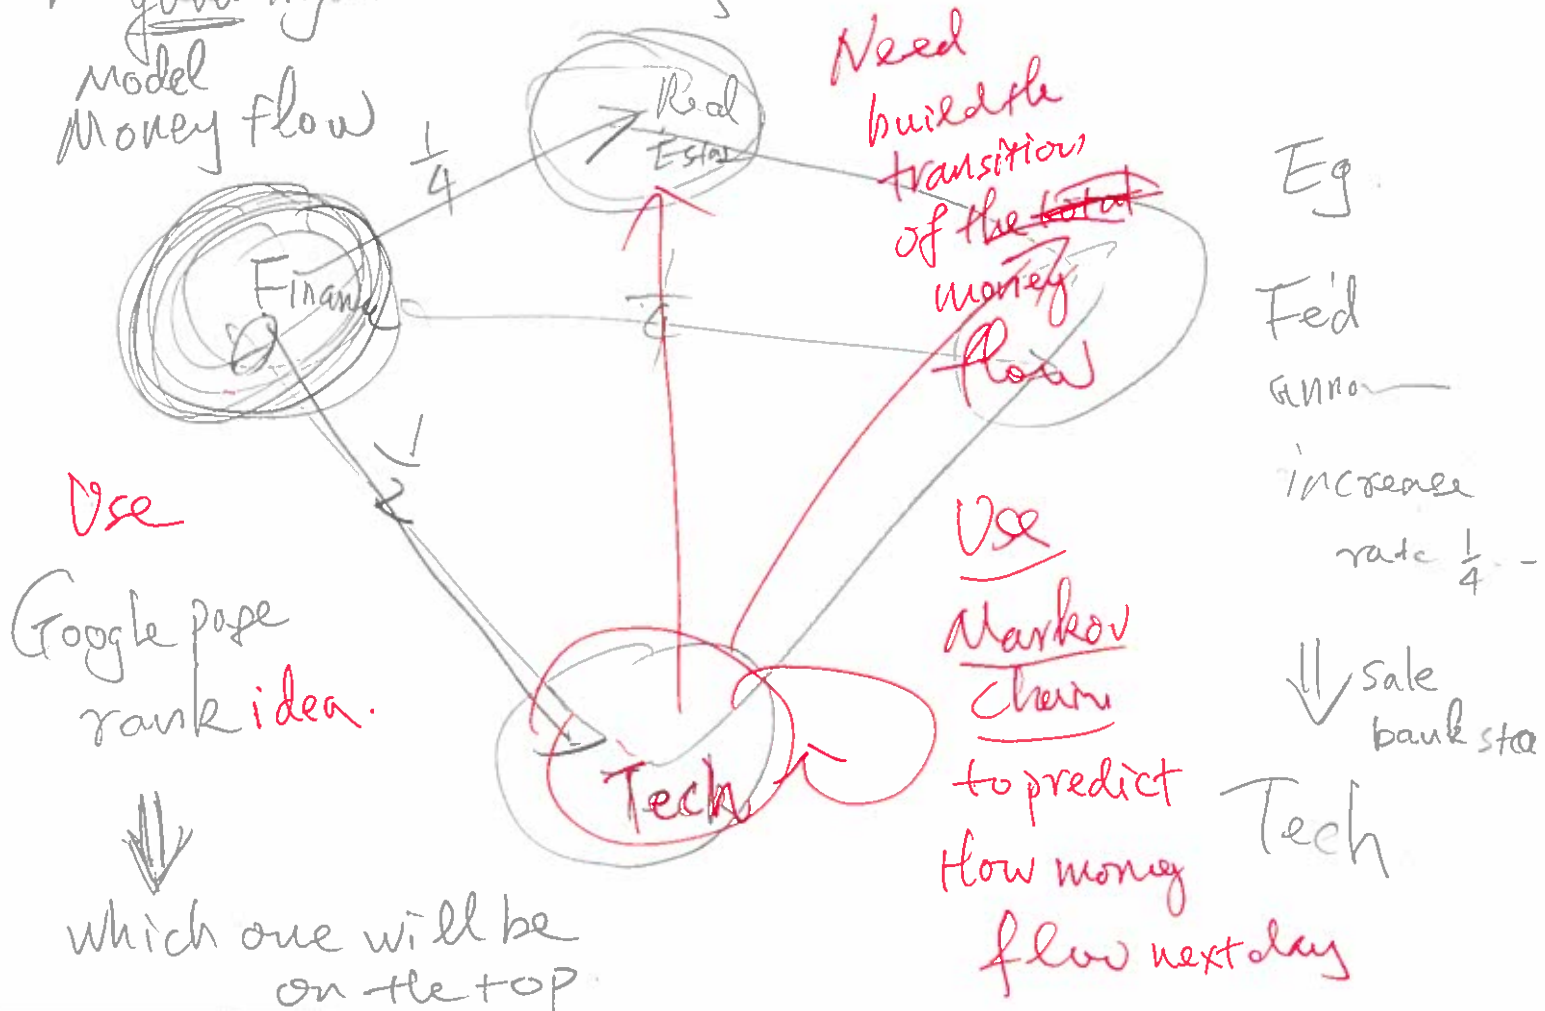 good
Model
Money flow
1/4
Real
Finan
1/2
Tech
Need
build the
transition
of the total
money
flow
Use
Google page
rank idea.
which one will be
on the top
Use
Markov
chain
to predict
How money
flow next day
Eg.
Fed
increase
rate 1/4
sale
bank
Tech